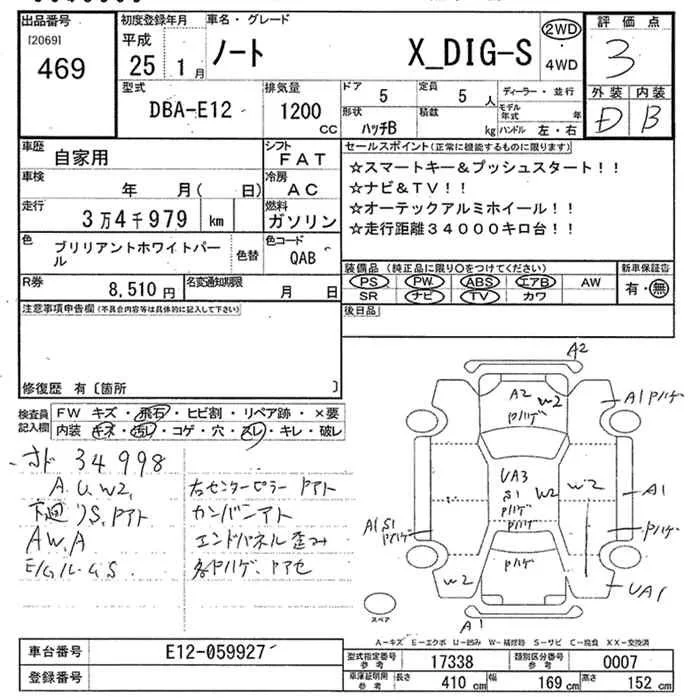 出品番号
[2069]
469
初度登録年月
平成
25 1月
車名・グレード
ノート X_DIG-S
2WD
4WD
評価点
3
外装 内装
D B
型式
DBA-E12
排気量
1200 cc
ドア 5
定員 5 人
形状 ハッチB
積載 kg
ディーラー・並行
モデル年式 年
ハンドル 左・右
車歴 自家用
シフト FAT
車検 年 月( 日)
冷房 AC
走行 3万4千979 km
燃料 ガソリン
色 ブリリアントホワイトパール
色替
色コード QAB
R券 8,510 円
名変通知期限 月 日
セールスポイント(正常に機能するものに限ります)
☆スマートキー&プッシュスタート!!
☆ナビ&TV!!
☆オーテックアルミホイール!!
☆走行距離34000キロ台!!
装備品 (純正品に限り○をつけてください)
PS PW ABS エアB AW
SR ナビ TV カワ
新車保証書
有・無
後日品
注意事項申告欄(不具合内容等は具体的に記入して下さい)
修復歴 有〔箇所 〕
検査員記入欄
FW キズ・飛石・ヒビ割・リペア跡・×要
内装 キズ・汚レ・コゲ・穴・スレ・キレ・破レ
34998
A.U.W2.
下廻りS.Pアト
AW.A
右センターピラー Pアト
カンバンアト
エンドパネル歪み
各Pハゲ.Pアセ
A2
A2
W2
Pハゲ
A1Pハゲ
UA3
S1
Pハゲ
W2
W2
Pハゲ
A1
Pハゲ
A1 S1
Pハゲ
Pハゲ
W2
UA1
A1
スペア
A-キズ E-エクボ U-凹み W-補修跡 S-サビ C-腐食 XX-交換済
車台番号 E12-059927
登録番号
型式指定番号 参考 17338
類別区分番号 参考 0007
車庫証明用 参考 長さ 410 cm 幅 169 cm 高さ 152 cm